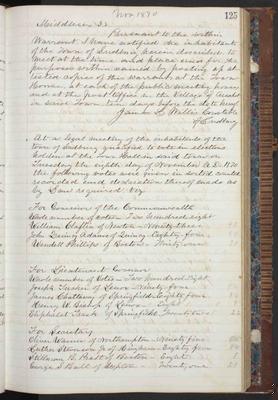 Nov 1870
125
Middlesex SS. Pursuant to the within
Warrant I have notified the inhabitants
of the Town of Sudbury herein described to
meet at the time and place and for the
purposes within named by posting up at
tested copies of this warrant at the Town
House, at each of the public meeting houses
and at the post offices in the Village of
in said Town ten days before the date hereof
James L. Willis Constable
of Sudbury
At a legal meeting of the inhabitants of the
town of Sudbury qualified to vote in elections
holden at the Town Hall in said town on
Tuesday the eighth day of November A.D. 1870
the following votes were given in sorted counted
recorded and declaration thereof made as
by Law required Viz
For Governor of the Commonwealth
Whole number of votes Two hundred eight
William Claflin of Newton Ninety-three
John Quincy Adams of Quincy Eighty four
Wendell Phillips of Boston Thirty one
For Lieutenant Governor
Whole number of votes Two hundred eight
Joseph Tucker of Lenox Ninety four
James Chattaway of Springfield Eighty four
of Lenox Eight
Eliphalet Trask of Springfield Twenty two
For Secretary
Oliver Warner of Northampton Ninety five
Luther Stephenson Jr of Hingham Eighty four
B. Pratt of Boston Eight
George S Ball of Upton Twenty one